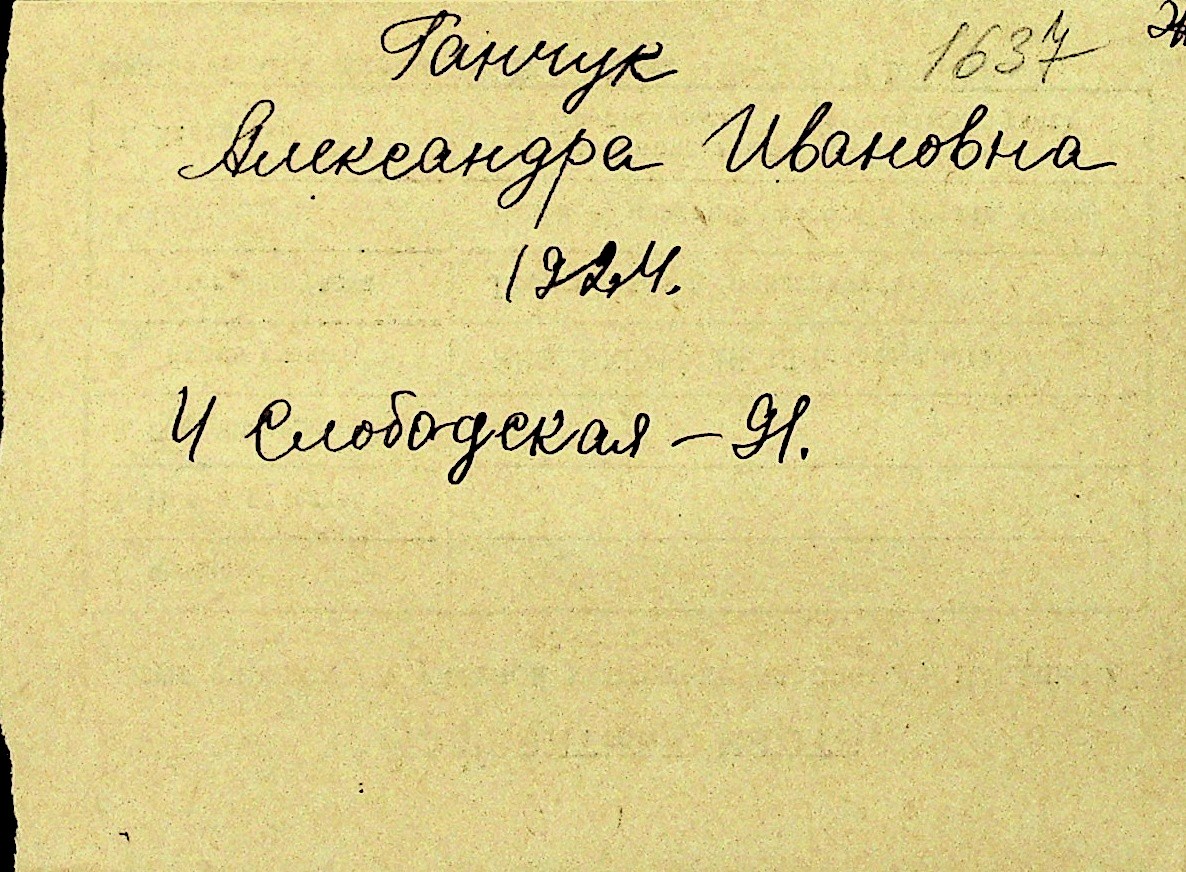 Ганчук 1637
Александра Ивановна
1924.
4 Слободская – 91.